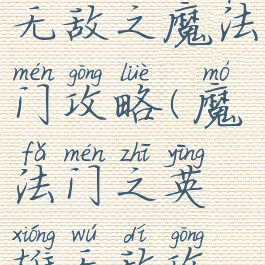 无敌之魔法
mén gōng lüè mó
门攻略(魔
fǎ mén zhī yīng
法门之英
xióng wú dí gōng
雄无敌攻